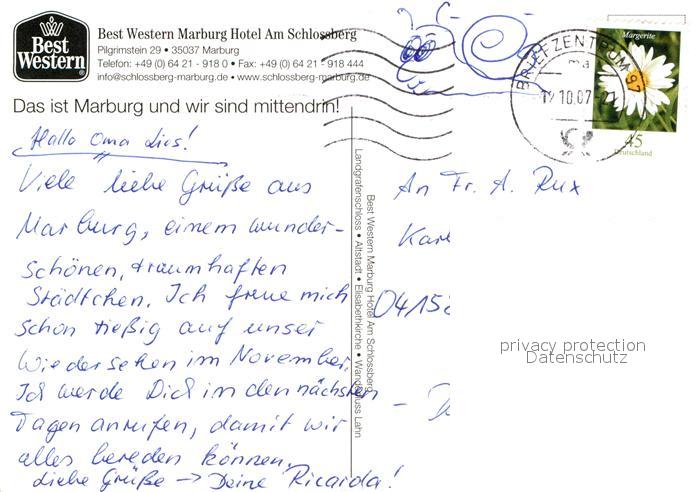 Best Western
Best Western Marburg Hotel Am Schlossberg
Pilgrimstein 29 • 35037 Marburg
Telefon: +49 (0) 64 21 - 918 0 • Fax: +49 (0) 64 21 - 918 444
info@schlossberg-marburg.de • www.schlossberg-marburg.de
Das ist Marburg und wir sind mittendrin!
Hallo Oma Lies!
Viele liebe Grüße aus
Marburg, einem wunder-
schönen, traumhaften
Städtchen. Ich freue mich
schon rießig auf unser
Wiedersehen im November.
Ich werde Dich in den nächsten
Tagen anrufen, damit wir
alles bereden können.
Liebe Grüße → Deine Ricarda!
Best Western Marburg Hotel Am Schlossberg
Landgrafenschloss • Altstadt • Elisabethkirche • Wanderfluss Lahn
BRIEFZENTRUM 97
10.07
Margerite
45
Deutschland
An Fr. A. Rux
04158
privacy protection
Datenschutz